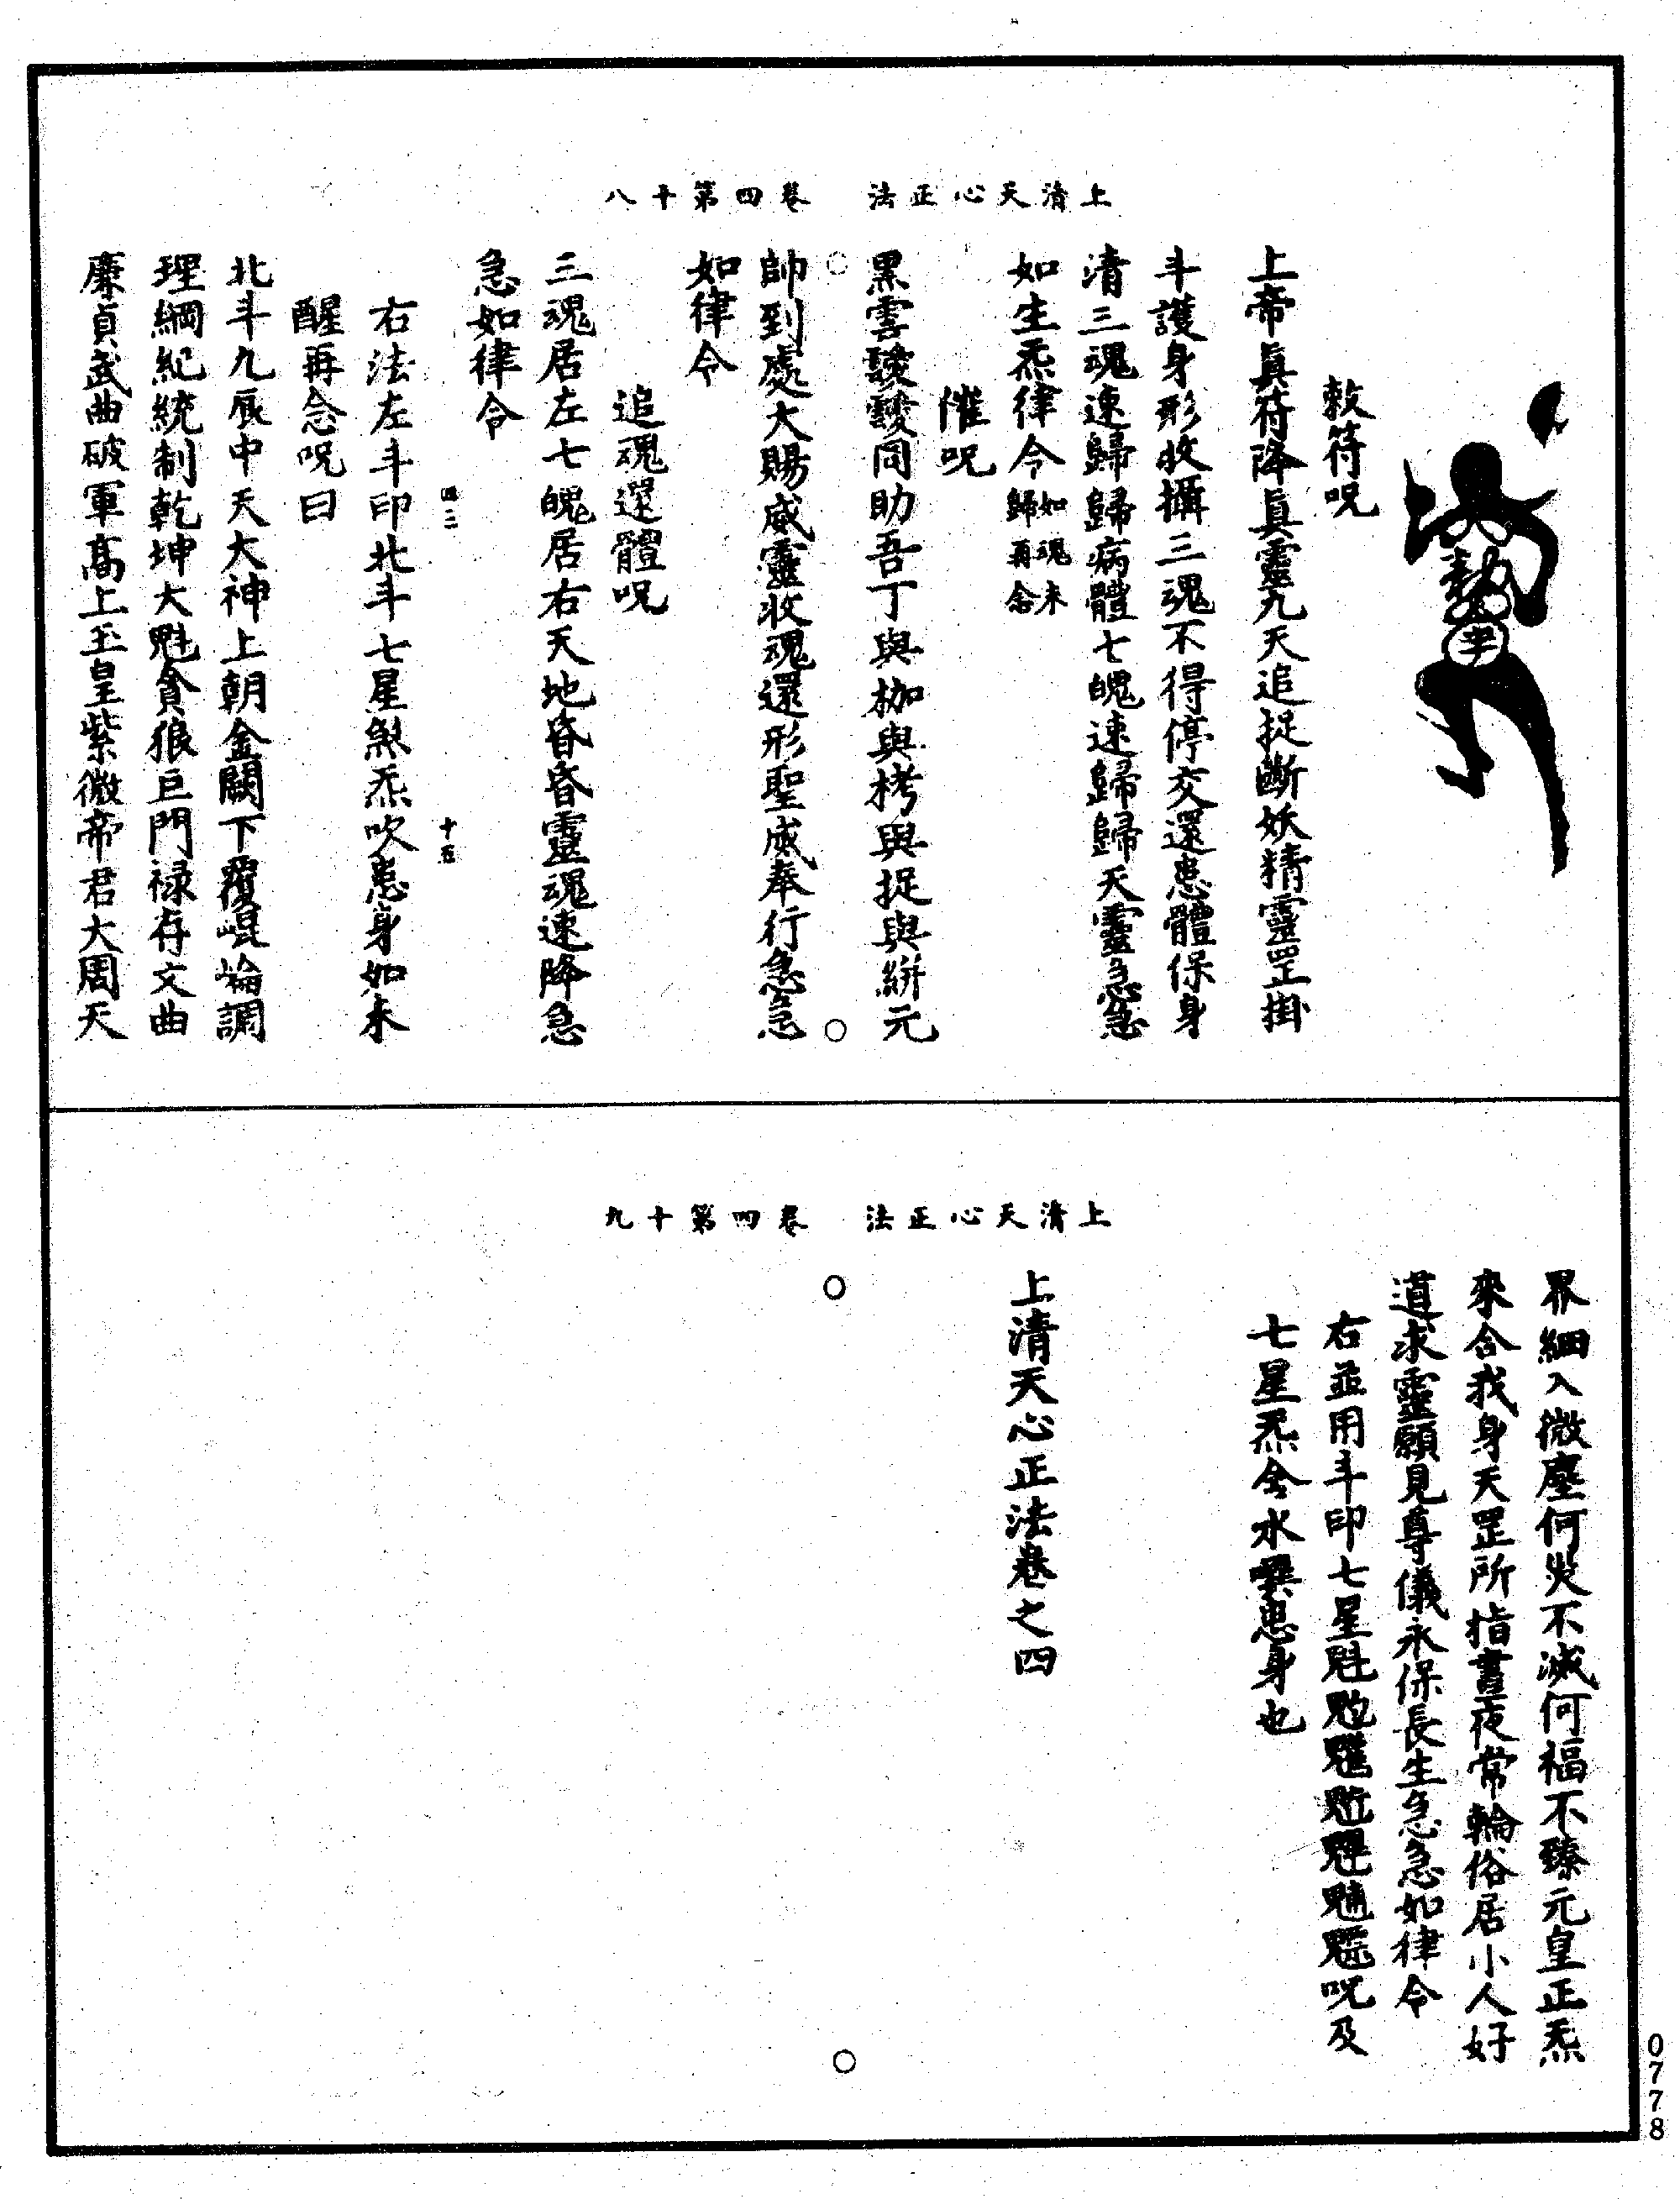 上清天心正法　卷四第十八
敕符呪
上帝眞符降眞靈九天追捉斷妖精靈罡掛
斗護身形收攝三魂不得停交還患體保身
清三魂速歸歸病體七魄速歸歸天靈急急
如生炁律令如魂未歸再念
催呪
黑雲靉靉同助吾丁與枷與栲與捉與絣元
帥到處大賜威靈收魂還形聖威奉行急急
如律令
追魂還體呪
三魂居左七魄居右天地昏昏靈魂速降急
急如律令
四二　十五
右法左斗印北斗七星煞炁吹患身如未
醒再念呪曰
北斗九辰中天大神上朝金闕下覆崐崘調
理綱紀統制乾坤大魁貪狼巨門禄存文曲
廉貞武曲破軍高上玉皇紫微帝君大周天
上清天心正法　卷四第十九
界細入微塵何災不滅何福不臻元皇正炁
來合我身天罡所指晝夜常輪俗居小人好
道求靈願見尊儀永保長生急急如律令
右並用斗印七星魁𩲃䰢魓䰡魒魑呪及
七星炁含水噀患身也
上清天心正法卷之四
0778